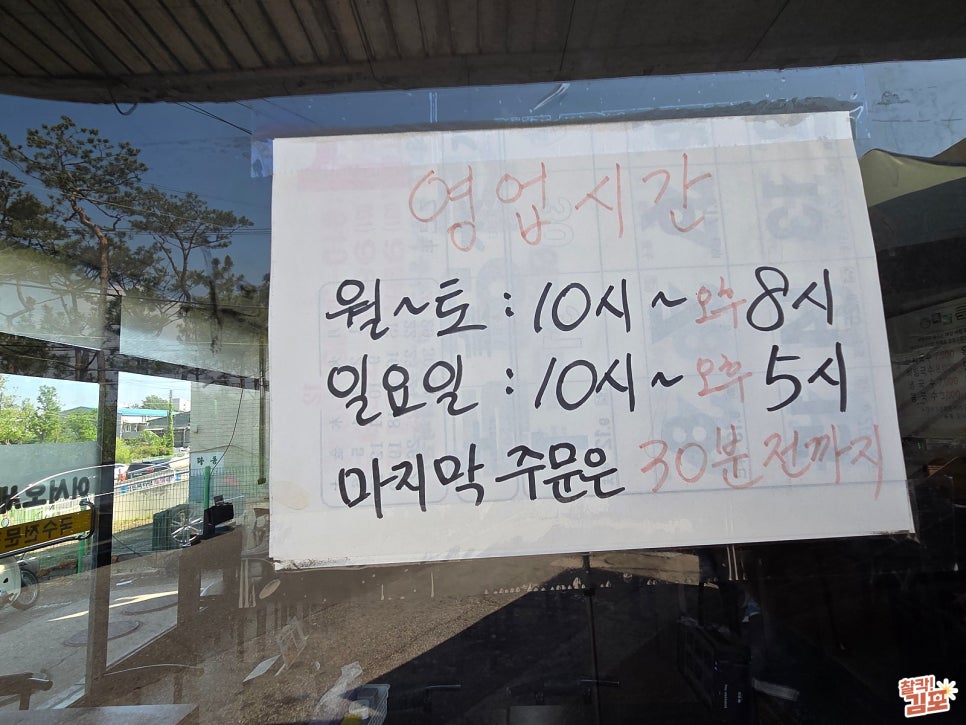 영업시간
월~토 : 10시 ~ 오후 8시
일요일 : 10시 ~ 오후 5시
마지막 주문은 30분 전까지
어서오세
국수전문
찰칵!
김포